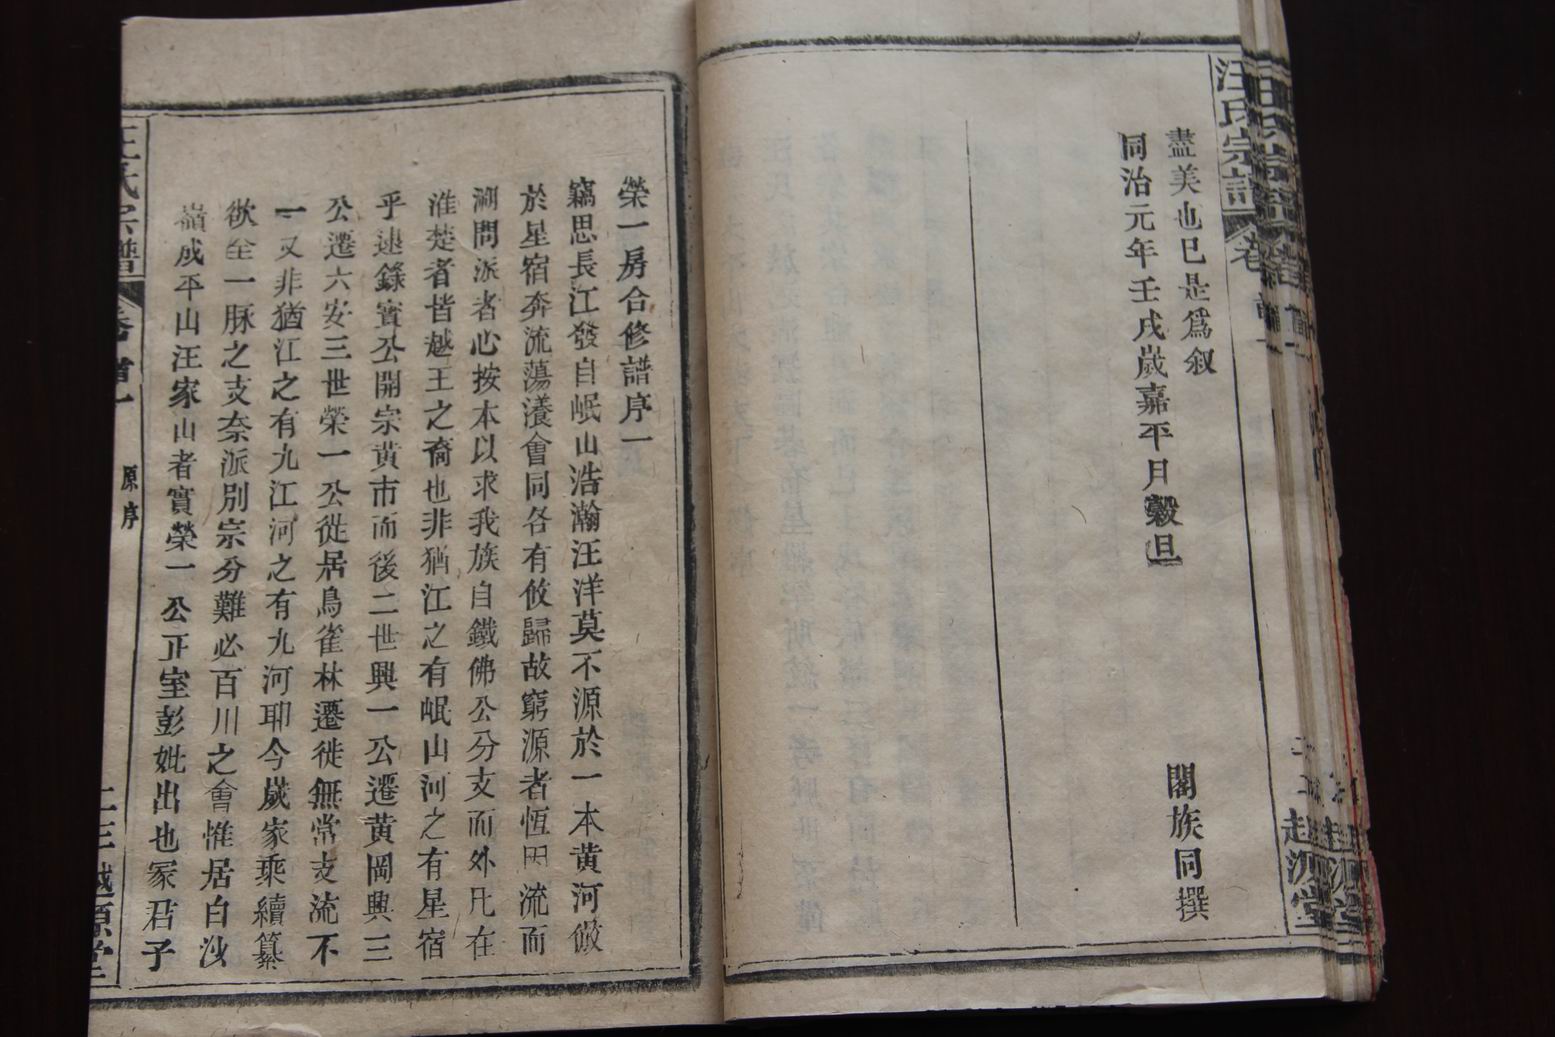 汪氏宗譜
卷首
趙源堂
盡美也已是爲叙
同治元年壬戌歲嘉平月穀旦
闔族同撰
榮一房合修譜序一
竊思長江發自岷山浩瀚汪洋莫不源於一本黄河倣
於星宿奔流蕩瀁會同各有攸歸故窮源者恆因流而
溯問派者必按本以求我族自鐵佛公分支而外凡在
淮楚者皆越王之裔也非猶江之有岷山河之有星宿
乎逮錄實公開宗黄市而後二世興一公遷黄岡興三
公遷六安三世榮一公徙居鳥雀林遷徙無常支流不
一又非猶江之有九江河之有九河耶今歲家乘續纂
欲全一脉之支奈派別宗分難必百川之會惟居白沙
嶺成平山汪家山者實榮一公正室彭妣出也冢君子
汪氏宗譜
卷首一
原序
二三
越源堂